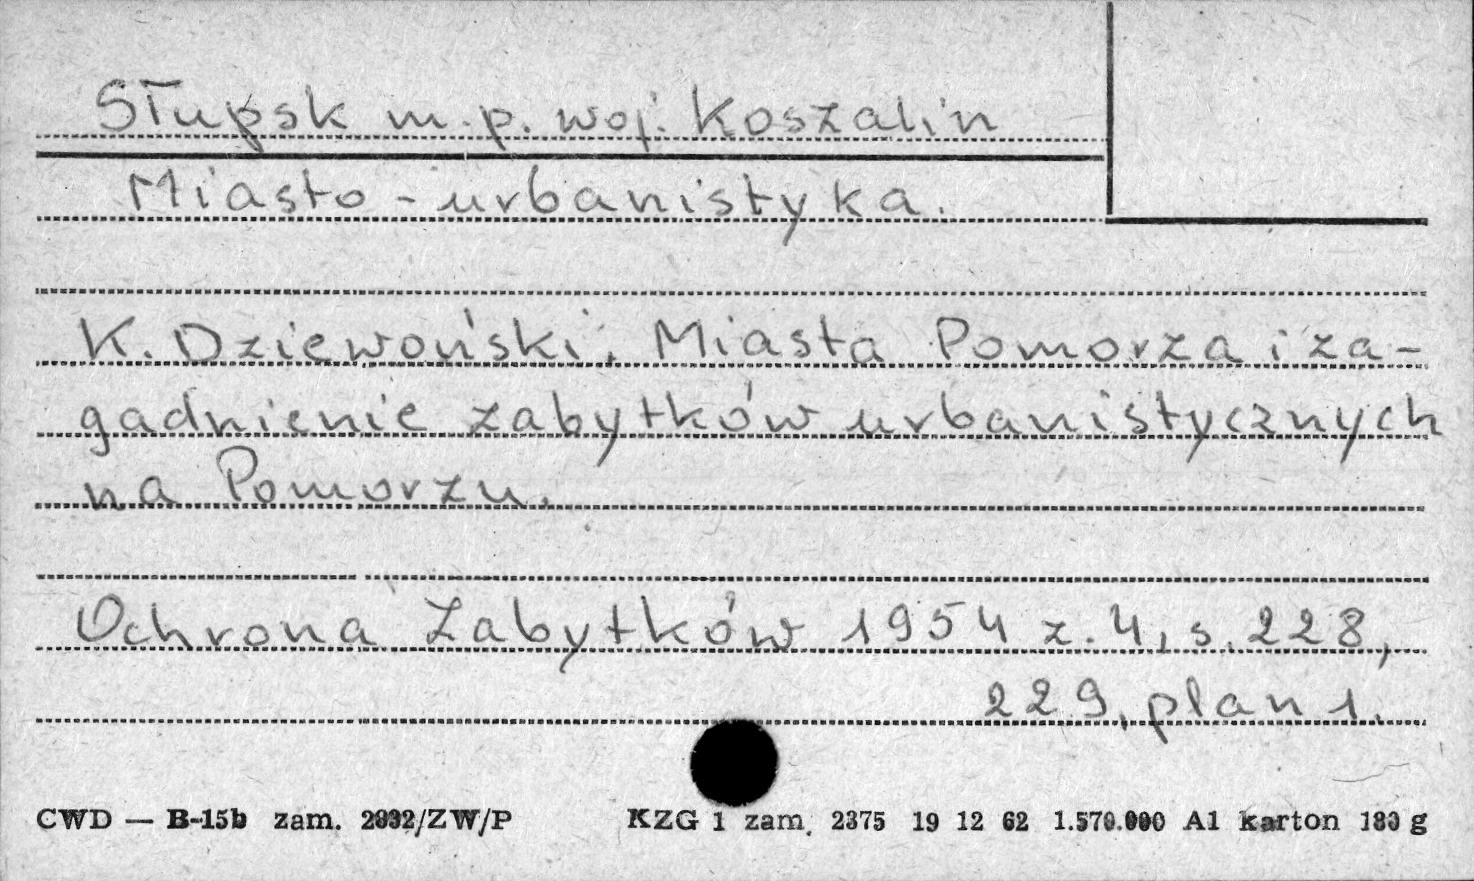 Słupsk m.p. woj. Koszalin
Miasto - urbanistyka.
K. Dziewoński, Miasta Pomorza i za-
gadnienie zabytków urbanistycznych
na Pomorzu.
Ochrona Zabytków 1954 z. 4, s. 228,
229, plan 1.
CWD — B-15b zam. 2832/ZW/P KZG 1 zam. 2375 19 12 62 1.570.000 A1 karton 180 g